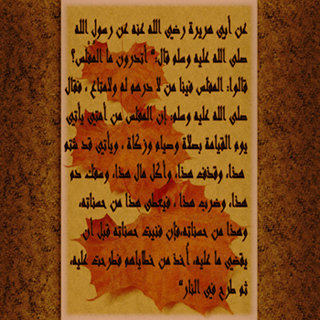 عن أبي هريرة رضي الله عنه عن رسول الله
صلى الله عليه وسلم قال:" أتدرون ما المفلس؟
قالوا: المفلس فينا من لا درهم له ولامتاع ، فقال
صلى الله عليه وسلم: إن المفلس من أمتي يأتي
يوم القيامة بصلاة وصيام وزكاة ، ويأتي قد شتم
هذا، وقذف هذا، وأكل مال هذا، وسفك دم
هذا، وضرب هذا ، فيعطى هذا من حسناته،
وهذا من حسناته،فإن فنيت حسناته قبل أن
يقضي ما عليه، أخذ من خطاياهم فطرحت عليه،
ثم طرح في النار"